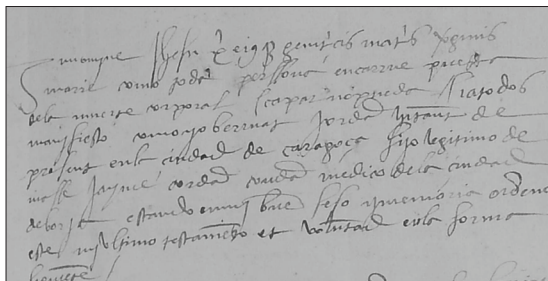 Jhesu xp̄ eiusq̃ genitricis matris virginis
marie como toda perssona en carne puesta
dela muerte corporal scapar no pueda Sia todos
manifiesto como yo bernat Jordan habitant de
present en la ciudad de caragoça fijo legitimo de
maese Jayme cordad medico de la ciudad
de borja estando en mj buen seso y memoria ordeno
este mj ultimo testamēto et voluntad en la forma
siguiente